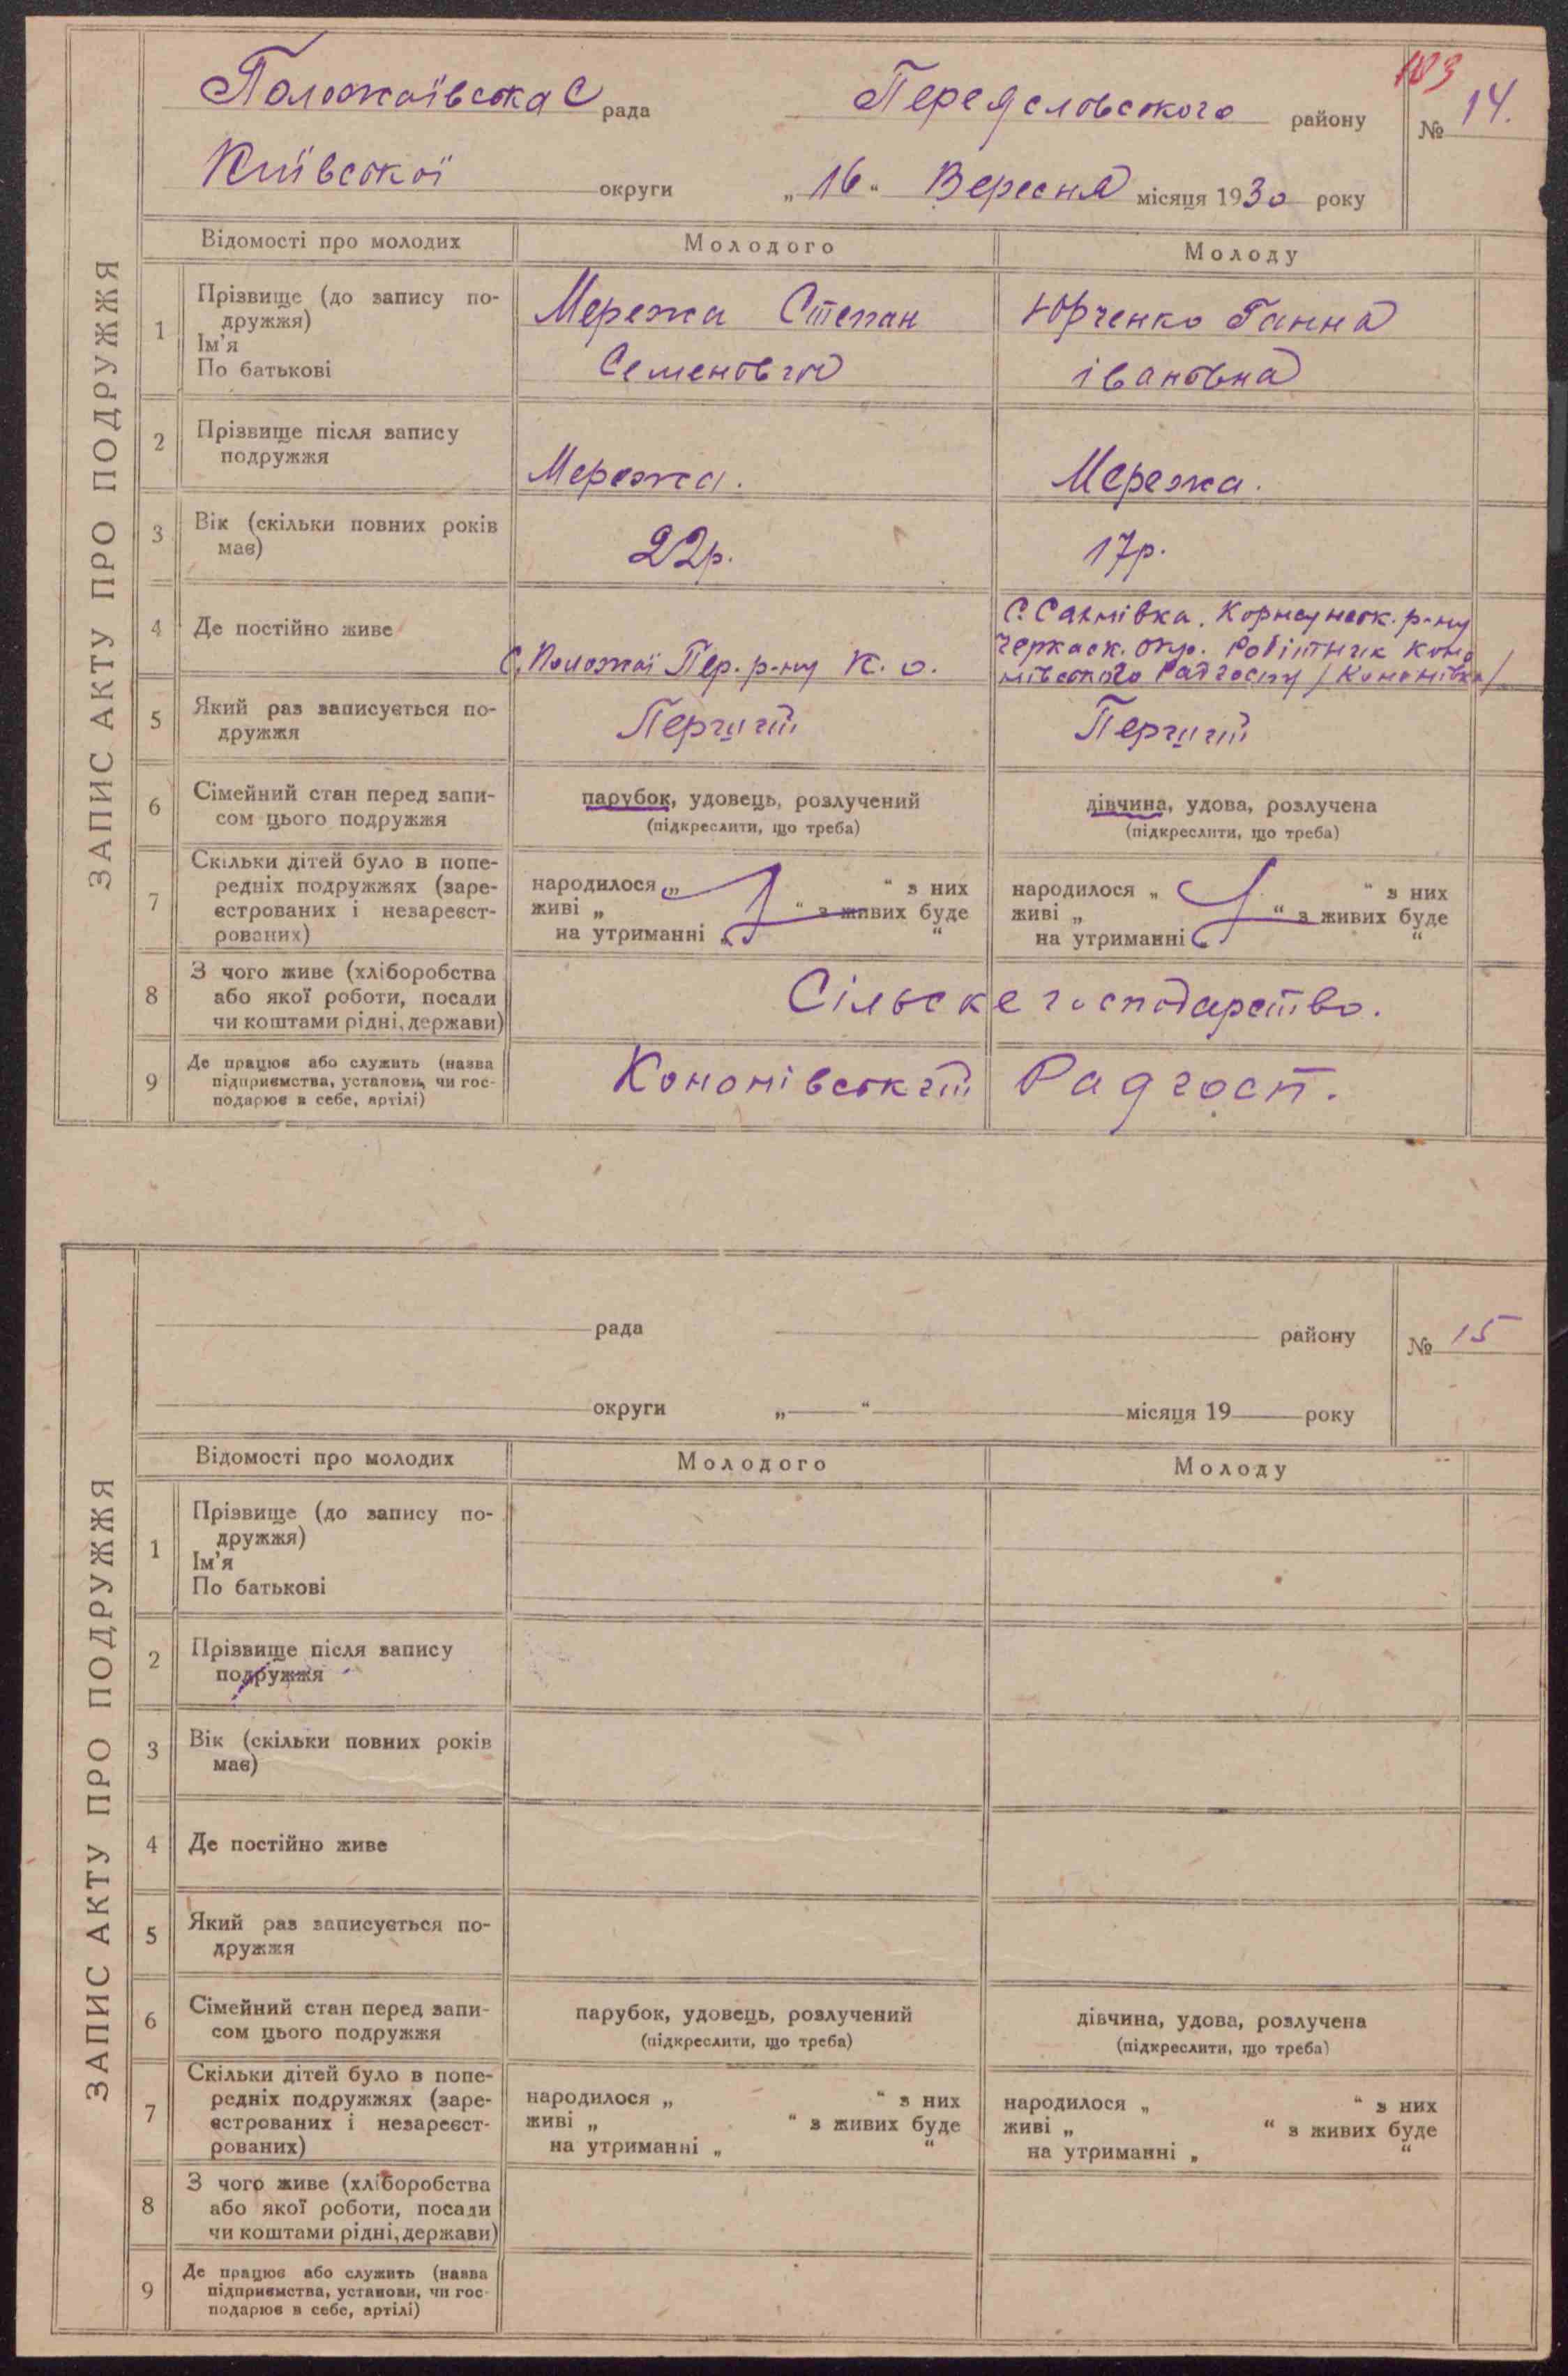 ЗАПИС АКТУ ПРО ПОДРУЖЖЯ
183
Положаївська С рада Переяславського району № 14.
Київської округи „16“ Вересня місяця 1930 року
Відомості про молодих Молодого Молоду
1 Прізвище (до запису подружжя) Ім'я По батькові
Мережа Степан
Семенович
Юрченко Ганна
івановна
2 Прізвище після запису
подружжя
Мережа. Мережа.
3 Вік (скільки повних років
має)
22р. 17р.
4 Де постійно живе
С. Положаї Пер. р-ну К. о.
С. Сахнівка. Корсунськ. р-ну
Черкаск. окр. Робітник Коно
мівського Радгоспу /Кономівка/
5 Який раз записується по-
дружжя
Перший Перший
6 Сімейний стан перед запи-
сом цього подружжя
парубок, удовець, розлучений
(підкреслити, що треба)
дівчина, удова, розлучена
(підкреслити, що треба)
7 Скільки дітей було в попе-
редніх подружжях (заре-
єстрованих і незареєст-
рованих)
народилося „ “ з них
живі „ “ з живих буде
на утриманні „ “
народилося „ “ з них
живі „ “ з живих буде
на утриманні „ “
8 З чого живе (хліборобства
або якої роботи, посади
чи коштами рідні, держави)
Сільске господарство.
9 Де працює або служить (назва
підприємства, установи, чи гос-
подарює в себе, артілі)
Кономівський Радгосп.
ЗАПИС АКТУ ПРО ПОДРУЖЖЯ
рада району № 15
округи „ “ місяця 19 року
Відомості про молодих Молодого Молоду
1 Прізвище (до запису по-
дружжя)
Ім'я
По батькові
2 Прізвище після запису
подружжя
3 Вік (скільки повних років
має)
4 Де постійно живе
5 Який раз записується по-
дружжя
6 Сімейний стан перед запи-
сом цього подружжя
парубок, удовець, розлучений
(підкреслити, що треба)
дівчина, удова, розлучена
(підкреслити, що треба)
7 Скільки дітей було в попе-
редніх подружжях (заре-
єстрованих і незареєст-
рованих)
народилося „ “ з них
живі „ “ з живих буде
на утриманні „ “
народилося „ “ з них
живі „ “ з живих буде
на утриманні „ “
8 З чого живе (хліборобства
або якої роботи, посади
чи коштами рідні, держави)
9 Де працює або служить (назва
підприємства, установи, чи гос-
подарює в себе, артілі)